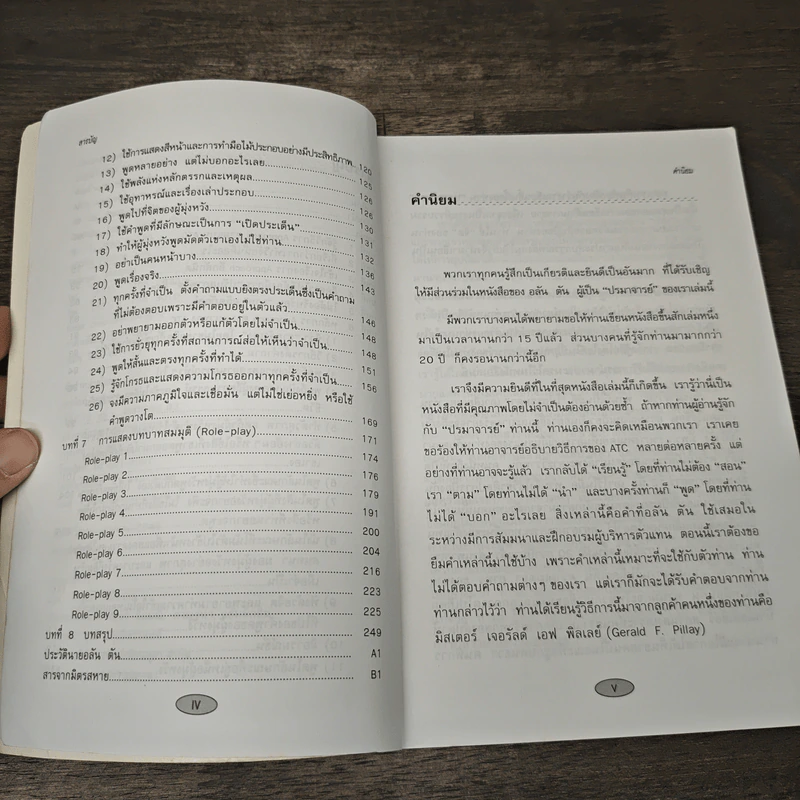 สารบัญ
12) ใช้การแสดงสีหน้าและการทำมือไม้ประกอบอย่างมีประสิทธิภาพ. 120
13) พูดหลายอย่าง แต่ไม่บอกอะไรเลย 125
14) ใช้พลังแห่งหลักตรรกและเหตุผล 126
15) ใช้อุทาหรณ์และเรื่องเล่าประกอบ 126
16) พูดไปที่จิตของผู้มุ่งหวัง 130
17) ใช้คำพูดที่มีลักษณะเป็นการ “เปิดประเด็น” 131
18) ทำให้ผู้มุ่งหวังพูดมัดตัวเขาเองไม่ใช่ท่าน 132
19) อย่าเป็นคนหน้าบาง 136
20) พูดเรื่องจริง 143
21) ทุกครั้งที่จำเป็น ตั้งคำถามแบบยิงตรงประเด็นซึ่งเป็นคำถาม
ที่ไม่ต้องตอบเพราะมีคำตอบอยู่ในตัวแล้ว 146
22) อย่าพยายามออกตัวหรือแก้ตัวโดยไม่จำเป็น 148
23) ใช้การยั่วยุทุกครั้งที่สถานการณ์ส่อให้เห็นว่าจำเป็น 148
24) พูดให้สั้นและตรงทุกครั้งที่ทำได้ 151
25) รู้จักโกรธและแสดงความโกรธออกมาทุกครั้งที่จำเป็น 156
26) จงมีความภาคภูมิใจและเชื่อมั่น แต่ไม่ใช่เย่อหยิ่ง หรือใช้
คำพูดวางโต 169
บทที่ 7 การแสดงบทบาทสมมุติ (Role-play) 171
Role-play 1 174
Role-play 2 176
Role-play 3 179
Role-play 4 191
Role-play 5 200
Role-play 6 204
Role-play 7 216
Role-play 8 223
Role-play 9 225
บทที่ 8 บทสรุป 249
ประวัตินายอลัน ตัน A1
สารจากมิตรสหาย B1
IV
คำนิยม
คำนิยม
พวกเราทุกคนรู้สึกเป็นเกียรติและยินดีเป็นอันมาก ที่ได้รับเชิญ
ให้มีส่วนร่วมในหนังสือของ อลัน ตัน ผู้เป็น “ปรมาจารย์” ของเราเล่มนี้
มีพวกเราบางคนได้พยายามขอให้ท่านเขียนหนังสือขึ้นสักเล่มหนึ่ง
มาเป็นเวลานานกว่า 15 ปีแล้ว ส่วนบางคนที่รู้จักท่านมามากกว่า
20 ปี ก็คงรอนานกว่านี้อีก
เราจึงมีความยินดีที่ในที่สุดหนังสือเล่มนี้ก็เกิดขึ้น เรารู้ว่านี่เป็น
หนังสือที่มีคุณภาพโดยไม่จำเป็นต้องอ่านด้วยซ้ำ ถ้าหากท่านผู้อ่านรู้จัก
กับ “ปรมาจารย์” ท่านนี้ ท่านเองก็คงจะคิดเหมือนพวกเรา เราเคย
ขอร้องให้ท่านอาจารย์อธิบายวิธีการของ ATC หลายต่อหลายครั้ง แต่
อย่างที่ท่านอาจจะรู้แล้ว เรากลับได้ “เรียนรู้” โดยที่ท่านไม่ต้อง “สอน”
เรา “ตาม” โดยท่านไม่ได้ “นำ” และบางครั้งท่านก็ “พูด” โดยที่ท่าน
ไม่ได้ “บอก” อะไรเลย สิ่งเหล่านี้คือคำที่อลัน ตัน ใช้เสมอใน
ระหว่างมีการสัมมนาและฝึกอบรมผู้บริหารตัวแทน ตอนนี้เราต้องขอ
ยืมคำเหล่านี้มาใช้บ้าง เพราะคำเหล่านี้เหมาะที่จะใช้กับตัวท่าน ท่าน
ไม่ได้ตอบคำถามต่างๆ ของเรา แต่เราก็มักจะได้รับคำตอบจากท่าน
ท่านกล่าวไว้ว่า ท่านได้เรียนรู้วิธีการนี้มาจากลูกค้าคนหนึ่งของท่านคือ
มิสเตอร์ เจอรัลด์ เอฟ พิลเลย์ (Gerald F. Pillay)
V